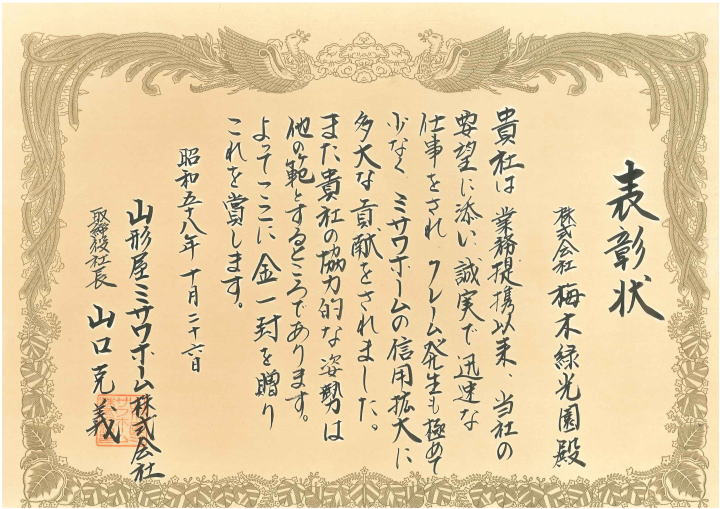 表彰状
株式会社 梅木緑光園殿
貴社は 業務提携以来、当社の
要望に添い 誠実で 迅速な
仕事をされ クレーム発生も極めて
少なく ミサワホームの信用拡大に
多大な貢献をされました。
また貴社の協力的な姿勢は
他の範とするところであります。
よってここに金一封を贈り
これを賞します。
昭和五十八年 十月二十六日
山形屋ミサワホーム株式会社
取締役社長 山口克義